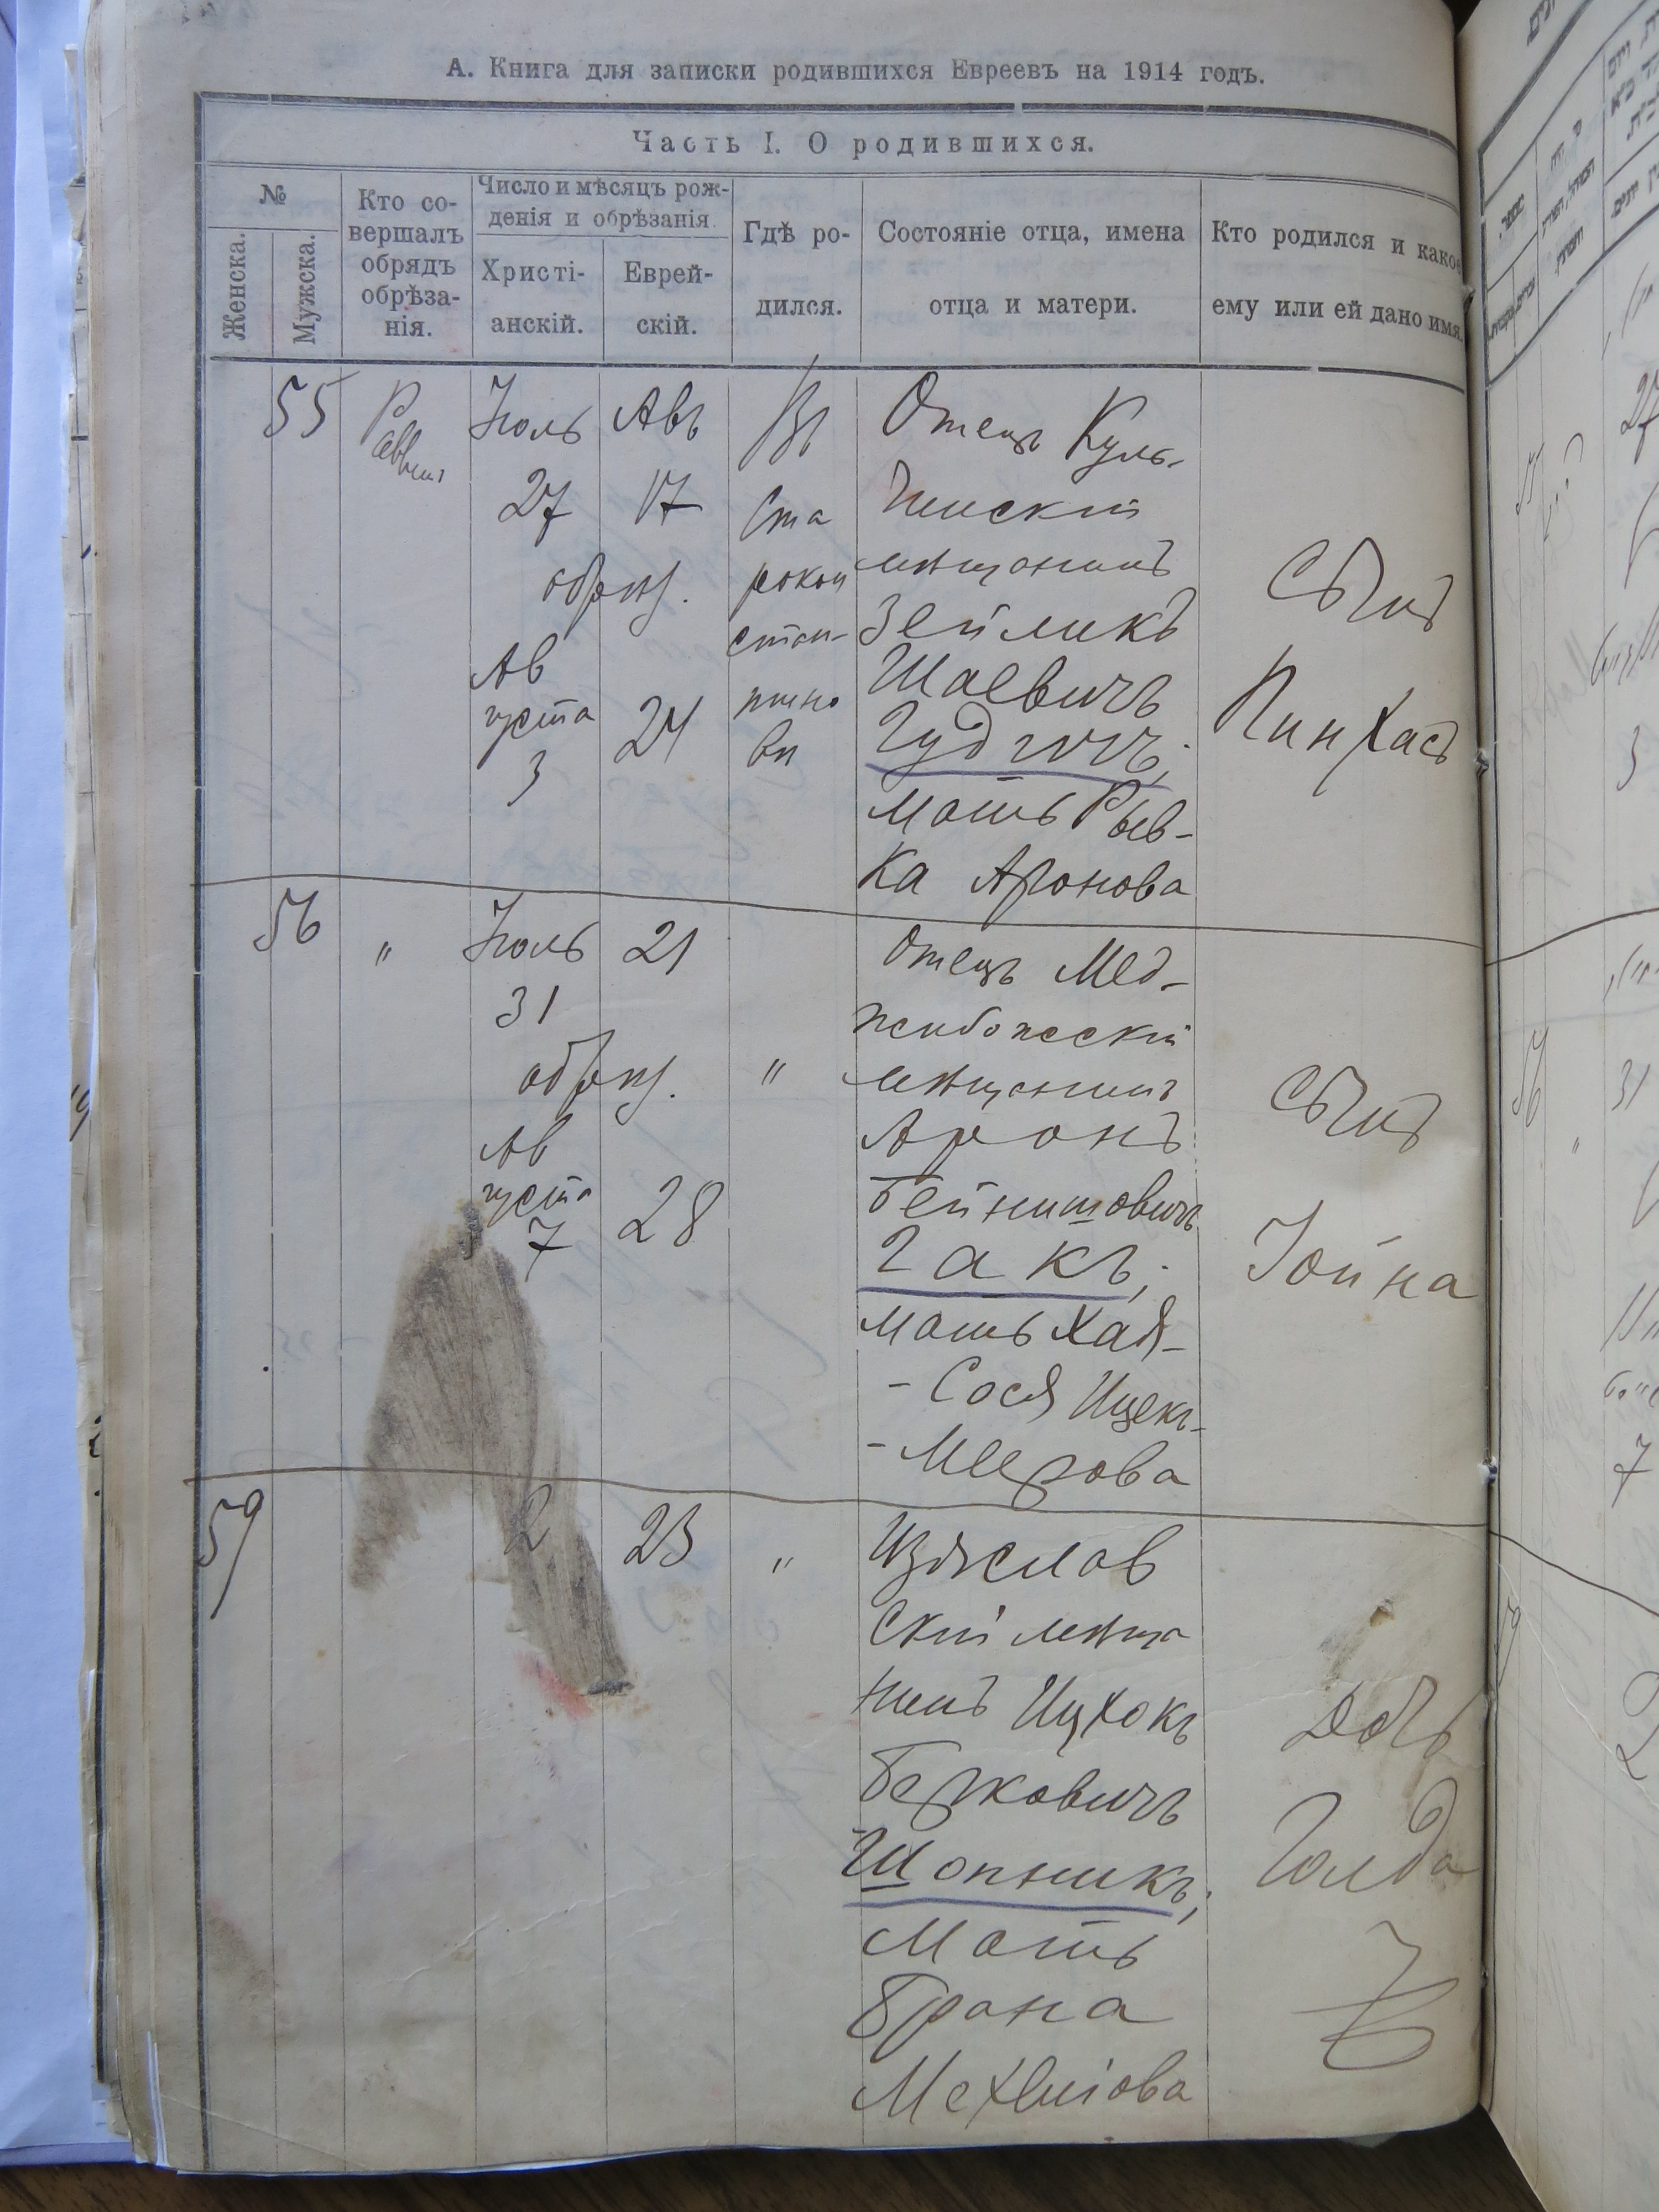 А. Книга для записки родившихся Евреевъ на 1914 годъ.
Часть I. О родившихся.
№
Женска.
Мужска.
Кто со-
вершалъ
обрядъ
обрѣза-
нія.
Число и мѣсяцъ рож-
денія и обрѣзанія.
Христі-
анскій.
Еврей-
скій.
Гдѣ ро-
дился.
Состояніе отца, имена
отца и матери.
Кто родился и какое
ему или ей дано имя.
55
Раввинъ
Іюль
27
обрѣз.
Ав
густа
3
Авъ
17
24
Въ
Ста
рокон
стан-
тино
вѣ
Отецъ Куль-
чинскій
мѣщанинъ
Зейликъ
Шаевичъ
мать Рыв-
ка Аронова
Сынъ
Пинхасъ
56
"
Іюль
31
обрѣз.
Ав
густа
7
21
28
"
Отецъ Мед-
жибожскій
мѣщанинъ
Аронъ
Бейнишовичъ
Гакъ;
мать Хая-
-Сося Ицекъ-
-Меерова
Сынъ
Іойна
59
2
23
"
Изяслав
скій мѣща
нинъ Ицхокъ
Берковичъ
Шопникъ;
Мать
Брана
Дочь
Голда